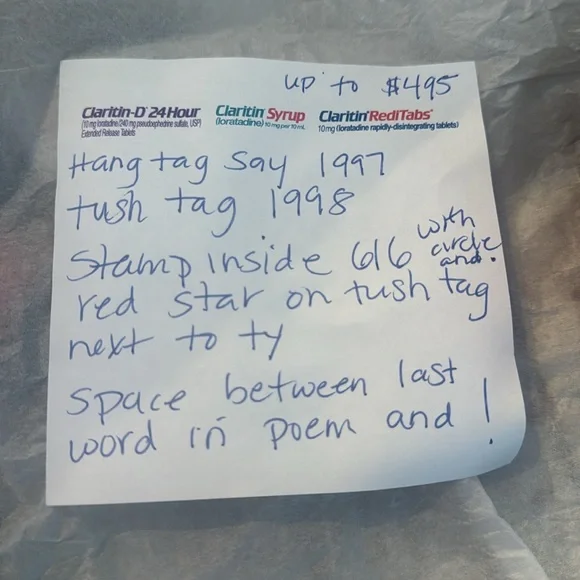 up to $495
Claritin-D 24 Hour Claritin Syrup Claritin RediTabs
(10 mg loratadine/240 mg pseudoephedrine sulfate, USP) (loratadine) 10 mg per 10 mL 10 mg (loratadine rapidly-disintegrating tablets)
Extended Release Tablets
Hang tag say 1997
tush tag 1998
Stamp inside 616 with circle and.
red star on tush tag
next to ty
space between last
word in poem and !